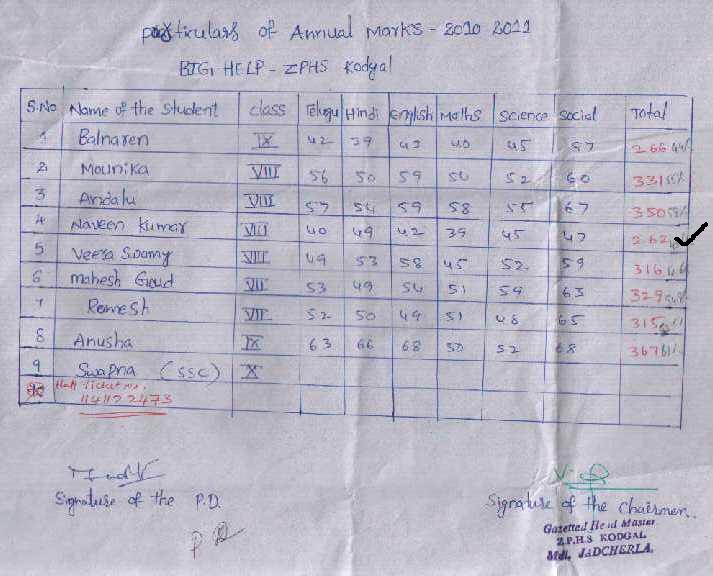 particulars of Annual Marks - 2010 2011
BIG HELP - ZPHS Kodgal
S.No Name of the Student class Telugu Hindi English Maths Science Social Total
1 Balnaren IX 42 39 43 40 45 57 266
2 Mounika VIII 56 50 59 54 52 60 331
3 Andalu VIII 57 54 59 58 55 67 350
4 Naveen Kumar VIII 40 49 42 39 45 47 262
5 Veera Swamy VII 49 53 58 45 52 59 316
6 Mahesh Goud VII 53 49 54 51 59 63 329
7 Remesh VII 52 50 49 51 48 65 315
8 Anusha IX 63 66 68 50 52 68 367 61%
9 Swapna (SSC) X
Hall Ticket no.
1141122473
Signature of the P.D.
Signature of the Chairmen.
P D
Gazetted Head Master
Z.P.H.S KODGAL
Mdl. JADCHERLA.